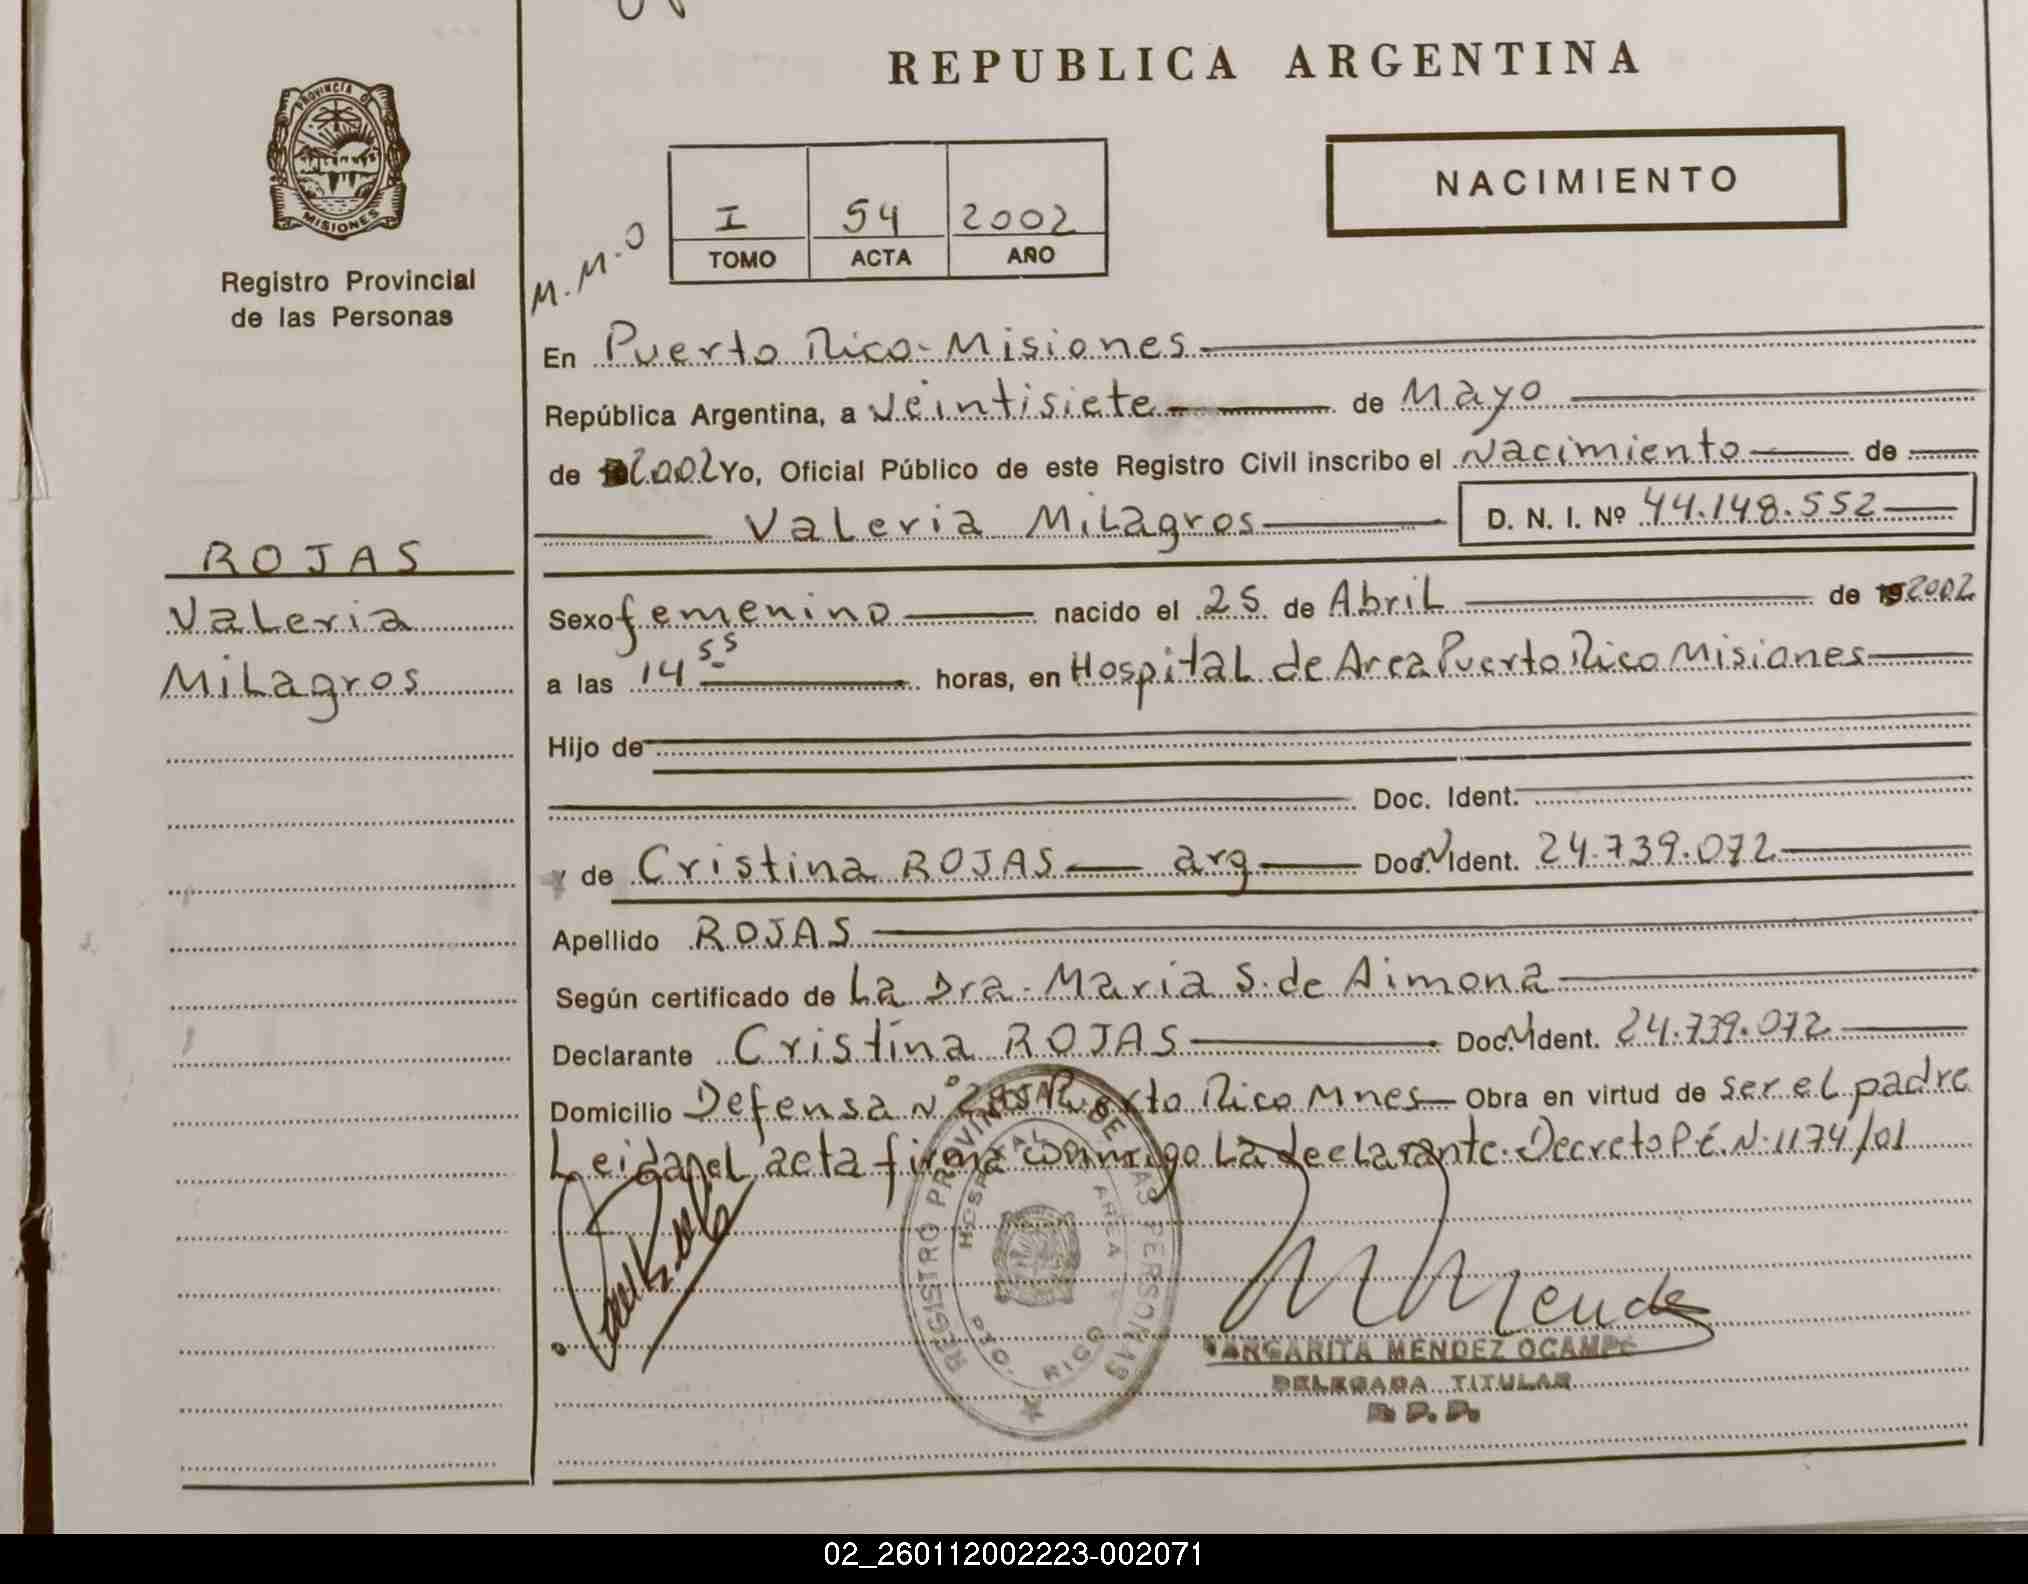 REPUBLICA ARGENTINA
PROVINCIA DE
MISIONES
Registro Provincial
de las Personas
NACIMIENTO
I 54 2002
TOMO ACTA AÑO
M.M.O
En Puerto Rico-Misiones
República Argentina, a veintisiete de Mayo
de 2002 Yo, Oficial Público de este Registro Civil inscribo el Nacimiento de
Valeria Milagros D. N. I. Nº 44.148.552
ROJAS
Valeria
Milagros
Sexo femenino nacido el 25 de Abril de 192002
a las 14 55 horas, en Hospital de Area Puerto Rico Misiones
Hijo de
Doc. Ident.
y de Cristina ROJAS arg Doc. N Ident. 24.739.072
Apellido ROJAS
Según certificado de La Dra. Maria S. de Aimona
Declarante Cristina ROJAS Doc. N Ident. 24.739.072
Domicilio Defensa Nº Puerto Rico Mnes Obra en virtud de ser el padre
Leida el acta firma conmigo La declarante. Decreto P.E. N. 1174/01
REGISTRO PROVINCIAL DE LAS PERSONAS
HOSPITAL AREA
PTO. RICO
MMende
MARGARITA MENDEZ OCAMPO
DELEGADA TITULAR
R. P. P.
02_260112002223-002071